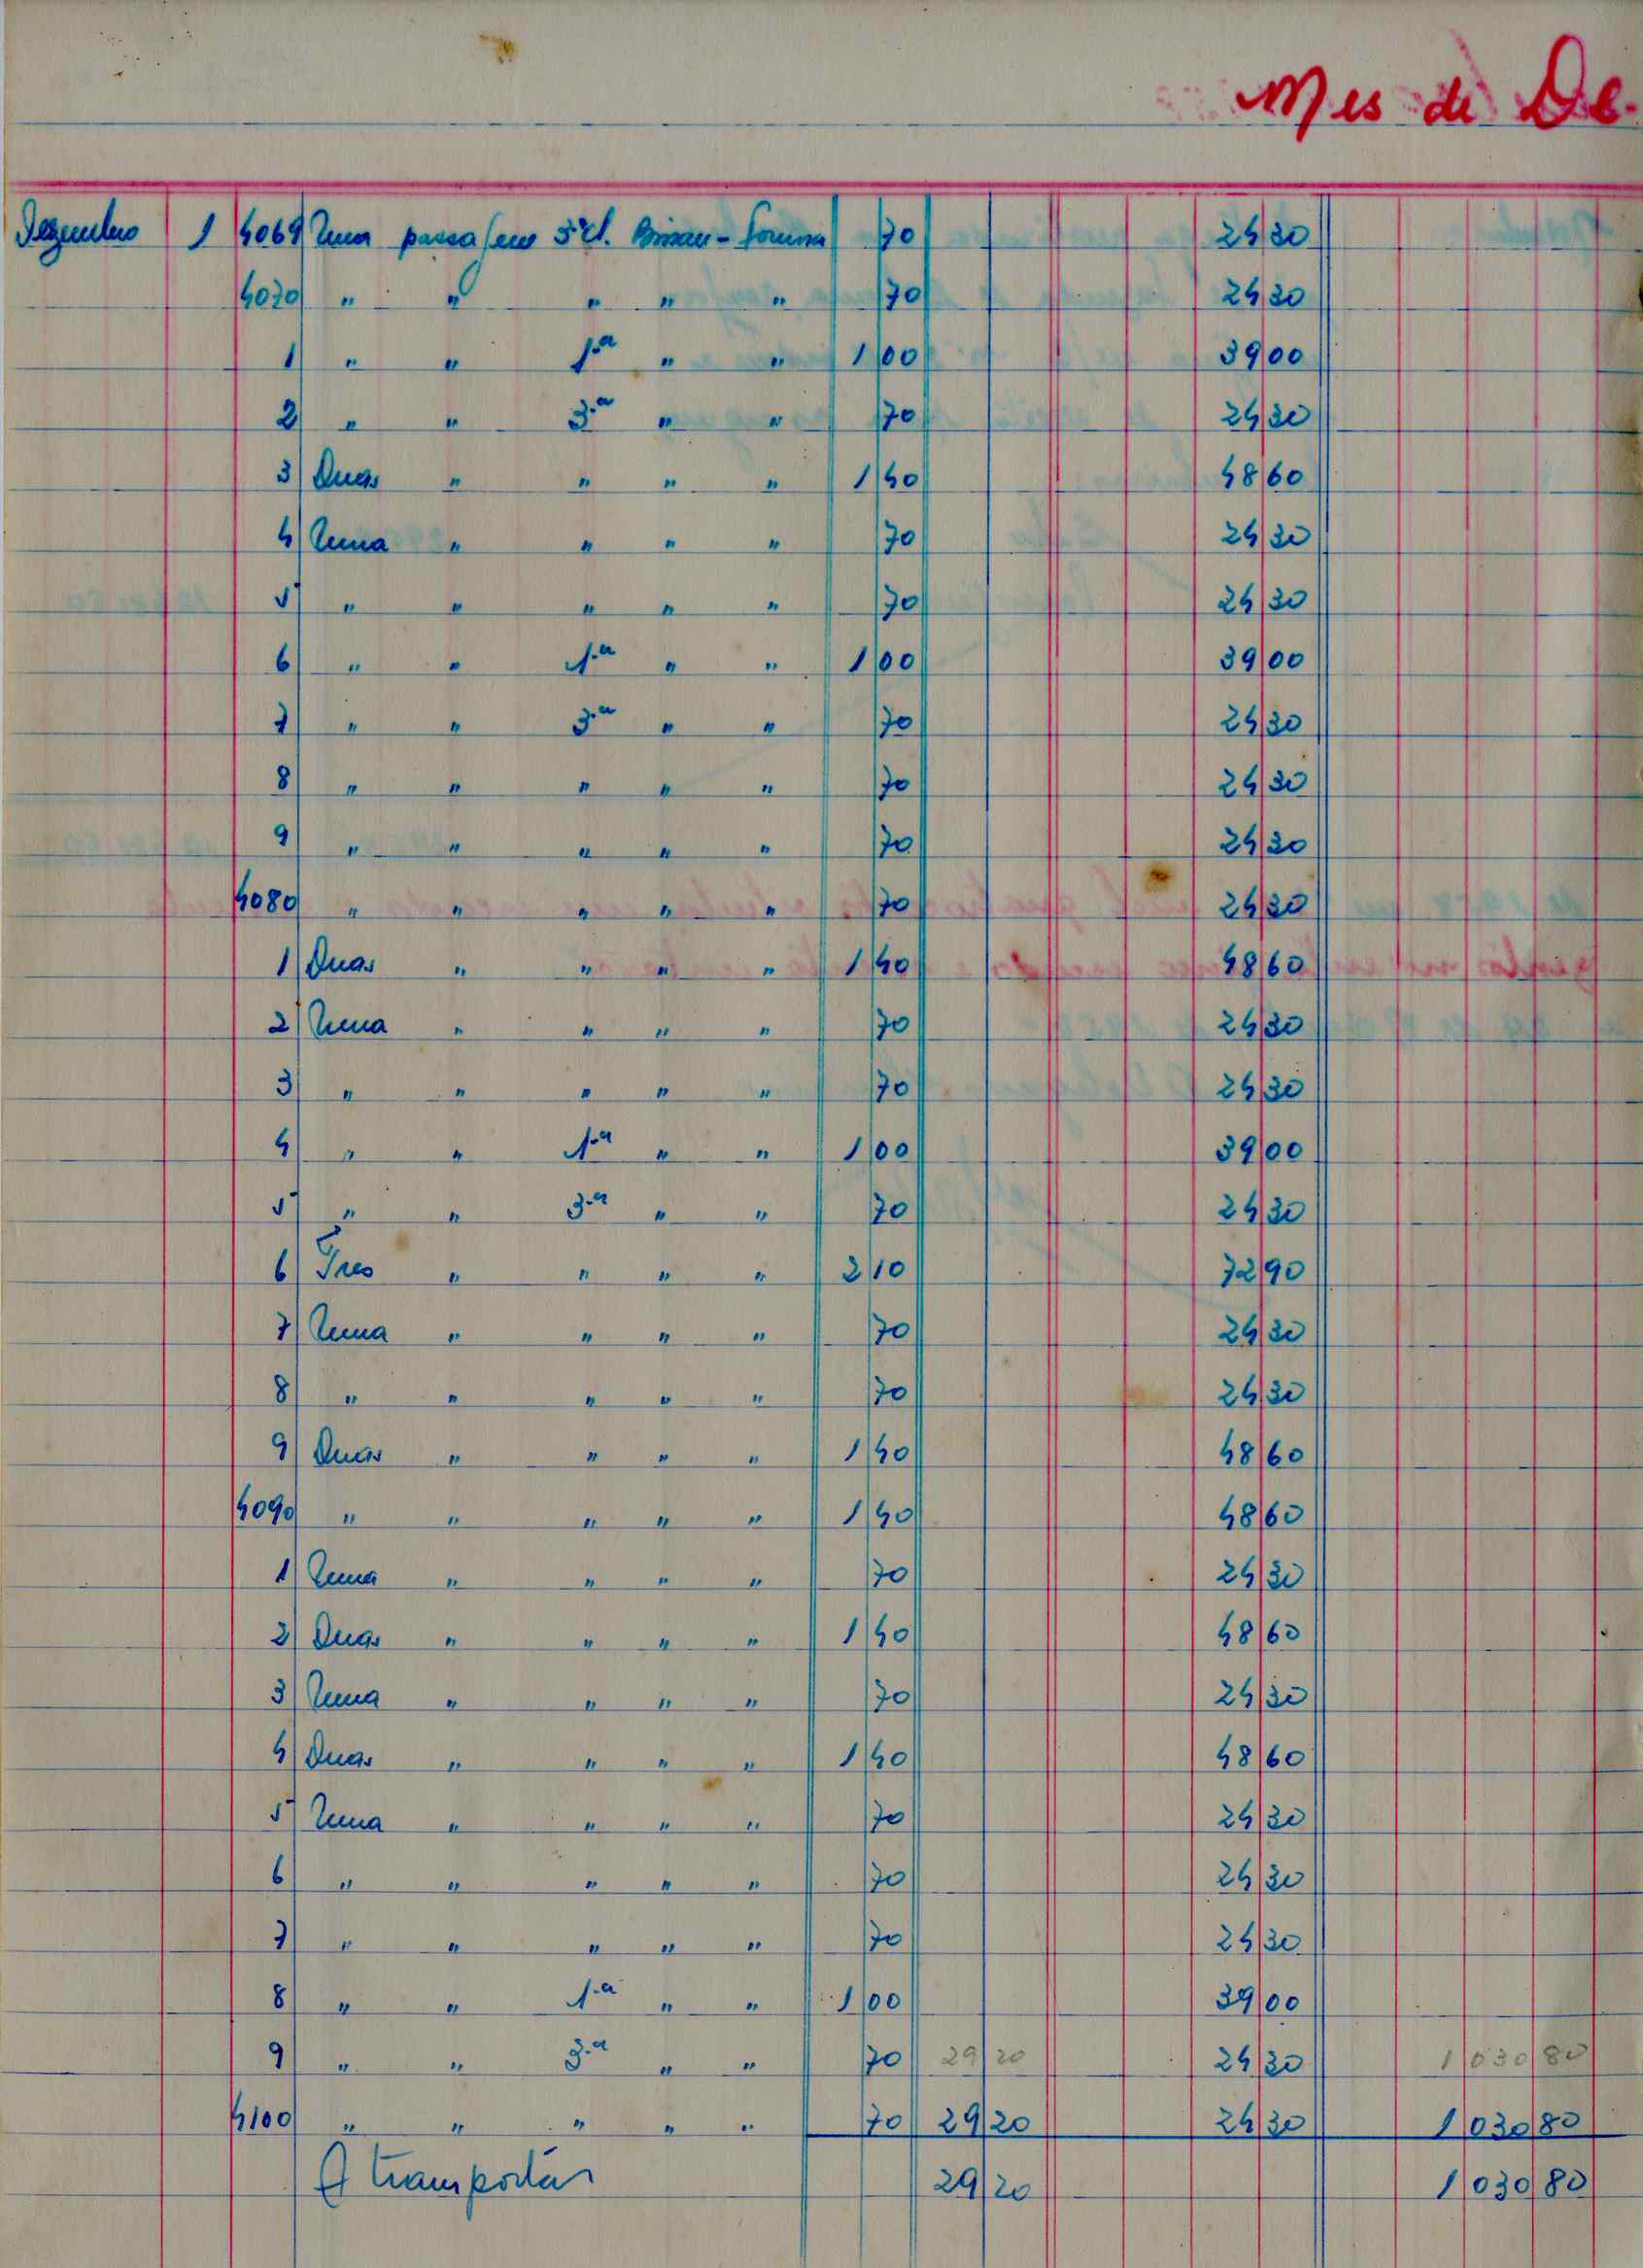 Mes de De-
Dezembro 1 4069 Uma passagem 3ª cl. Bissau - 70 24 30
4070 " " " " " 70 24 30
1 " " 1.a " " 1 00 39 00
2 " " 3.a " " 70 24 30
3 Duas " " " " 1 40 48 60
4 Uma " " " " 70 24 30
5 " " " " " 70 24 30
6 " " 1.a " " 1 00 39 00
7 " " 3.a " " 70 24 30
8 " " " " " 70 24 30
9 " " " " " 70 24 30
4080 " " " " " 70 24 30
1 Duas " " " " 1 40 48 60
2 Uma " " " " 70 24 30
3 " " " " " 70 24 30
4 " " 1.a " " 1 00 39 00
5 " " 3.a " " 70 24 30
6 Tres " " " " 2 10 72 90
7 Uma " " " " 70 24 30
8 " " " " " 70 24 30
9 Duas " " " " 1 40 48 60
4090 " " " " " 1 40 48 60
1 Uma " " " " 70 24 30
2 Duas " " " " 1 40 48 60
3 Uma " " " " 70 24 30
4 Duas " " " " 1 40 48 60
5 Uma " " " " 70 24 30
6 " " " " " 70 24 30
7 " " " " " 70 24 30
8 " " 1.a " " 1 00 39 00
9 " " 3.a " " 70 29 20 24 30 1 030 80
4100 " " " " " 70 29 20 24 30 1 030 80
A transportar 29 20 1 030 80